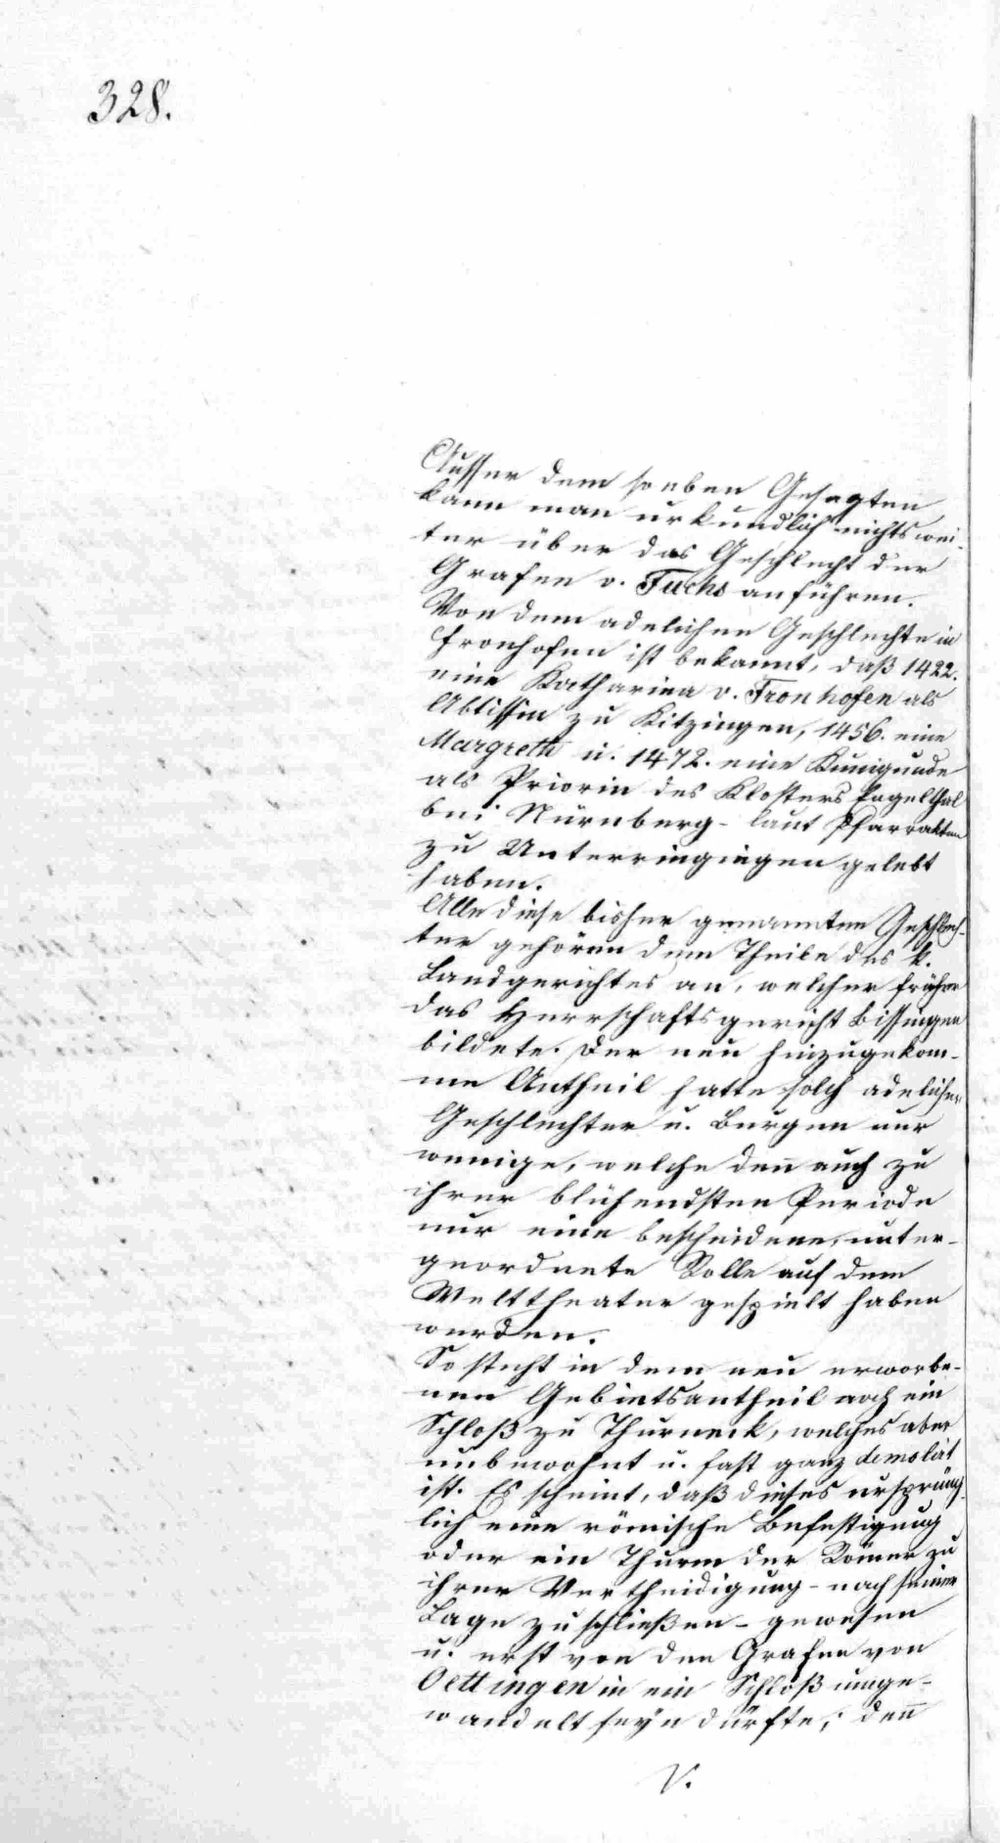 328.
Ausser dem so eben Gesagten
kann man urkundlich nichts wei-
ter über das Geschlecht der
Grafen v. Fuchs anführen.
Von dem adelichen Geschlechte in
Fronhofen ist bekannt, daß 1422.
eine Katharina v. Fronhofen als
Abtissin zu Kitzingen, 1456. eine
Margreth u. 1472. eine Kunigunde
als Priorin des Klosters Engelthal
bei Nürnberg - laut Pfarrakten
zu Unterringingen gelebt
haben.
Alle diese bisher genannten Geschlech-
ter gehören dem Theile des k.
Landgerichtes an, welcher früher
das Herrschaftsgericht Bissingen
bildete. Der neu hinzugekom-
me Antheil hatte solch adelicher
Geschlechter u. Burgen nur
wenige, welche den̄ auch zu
ihrer blühendsten Periode
nur eine bescheidene, unter-
geordnete Rolle auf dem
Welttheater gespielt haben
werden.
So steht in dem neu erworbe-
nen Gebietsantheil noch ein
Schloß zu Thurneck, welches aber
unbewohnt u. fast ganz demolirt
ist. Es scheint, daß dieses ursprüng-
lich eine römische Befestigung
oder ein Thurm der Römer zu
ihrer Vertheidigung - nach seiner
Lage zu schließen - gewesen
u. erst von den Grafen von
Oettingen in ein Schloß umge-
wandelt seyn dürfte; den̄
V.